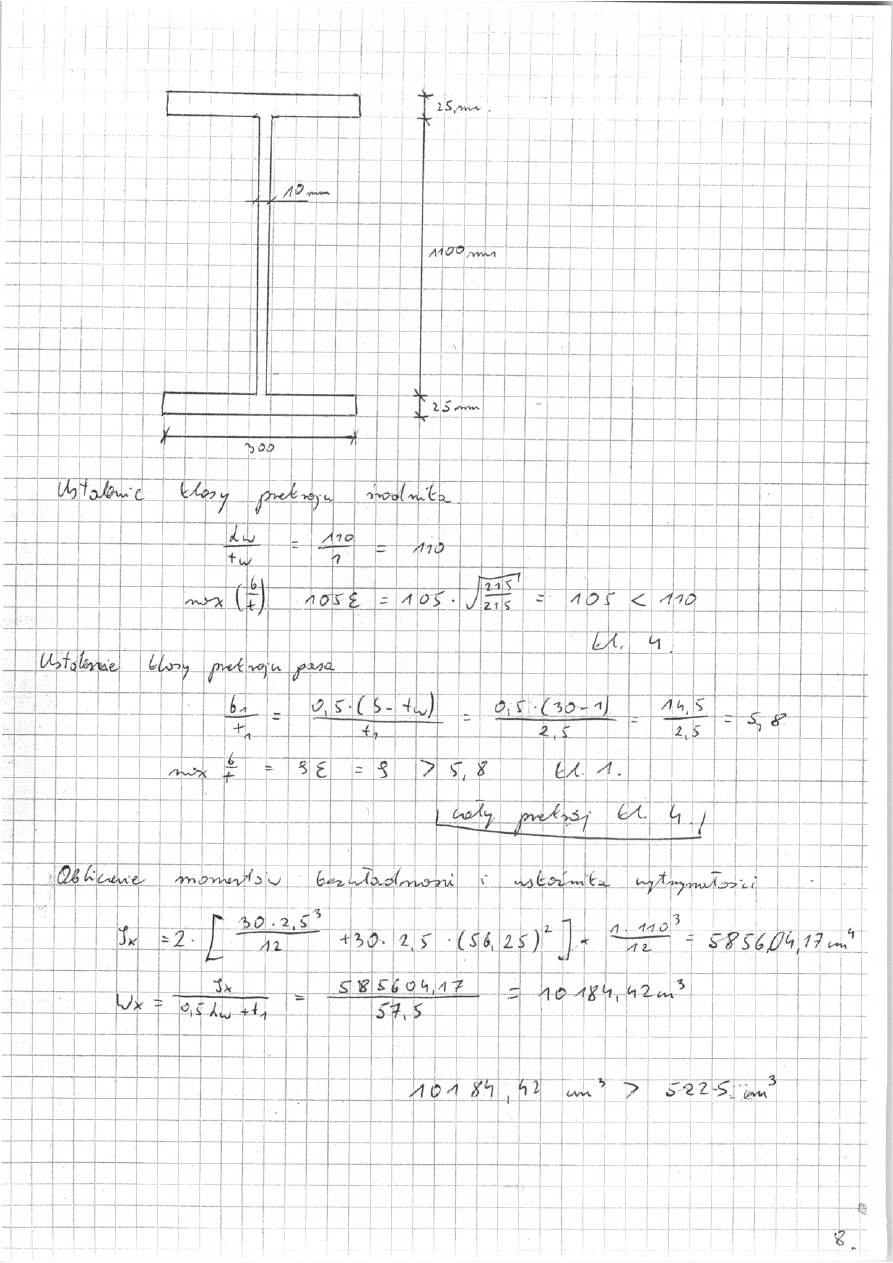 25 mm.
10 mm
1100 mm
25 mm
300
Ustalenie klasy przekroju środnika
hw/tw = 110/1 = 110
max (b/t) 105ε = 105 · √(215/215) = 105 < 110
kl. 4.
Ustalenie klasy przekroju pasa
b1/t1 = 0,5·(b-tw)/t1 = 0,5·(30-1)/2,5 = 14,5/2,5 = 5,8
max b/t = 9ε = 9 > 5,8 kl. 1.
cały przekrój kl. 4.
Obliczenie momentów bezwładności i wskaźnika wytrzymałości
Jx = 2·[30·2,5³/12 + 30·2,5·(56,25)²] + 1·110³/12 = 585604,17 cm⁴
Wx = Jx/(0,5hw+t1) = 585604,17/57,5 = 10184,42 cm³
10184,42 cm³ > 5225 cm³
8.